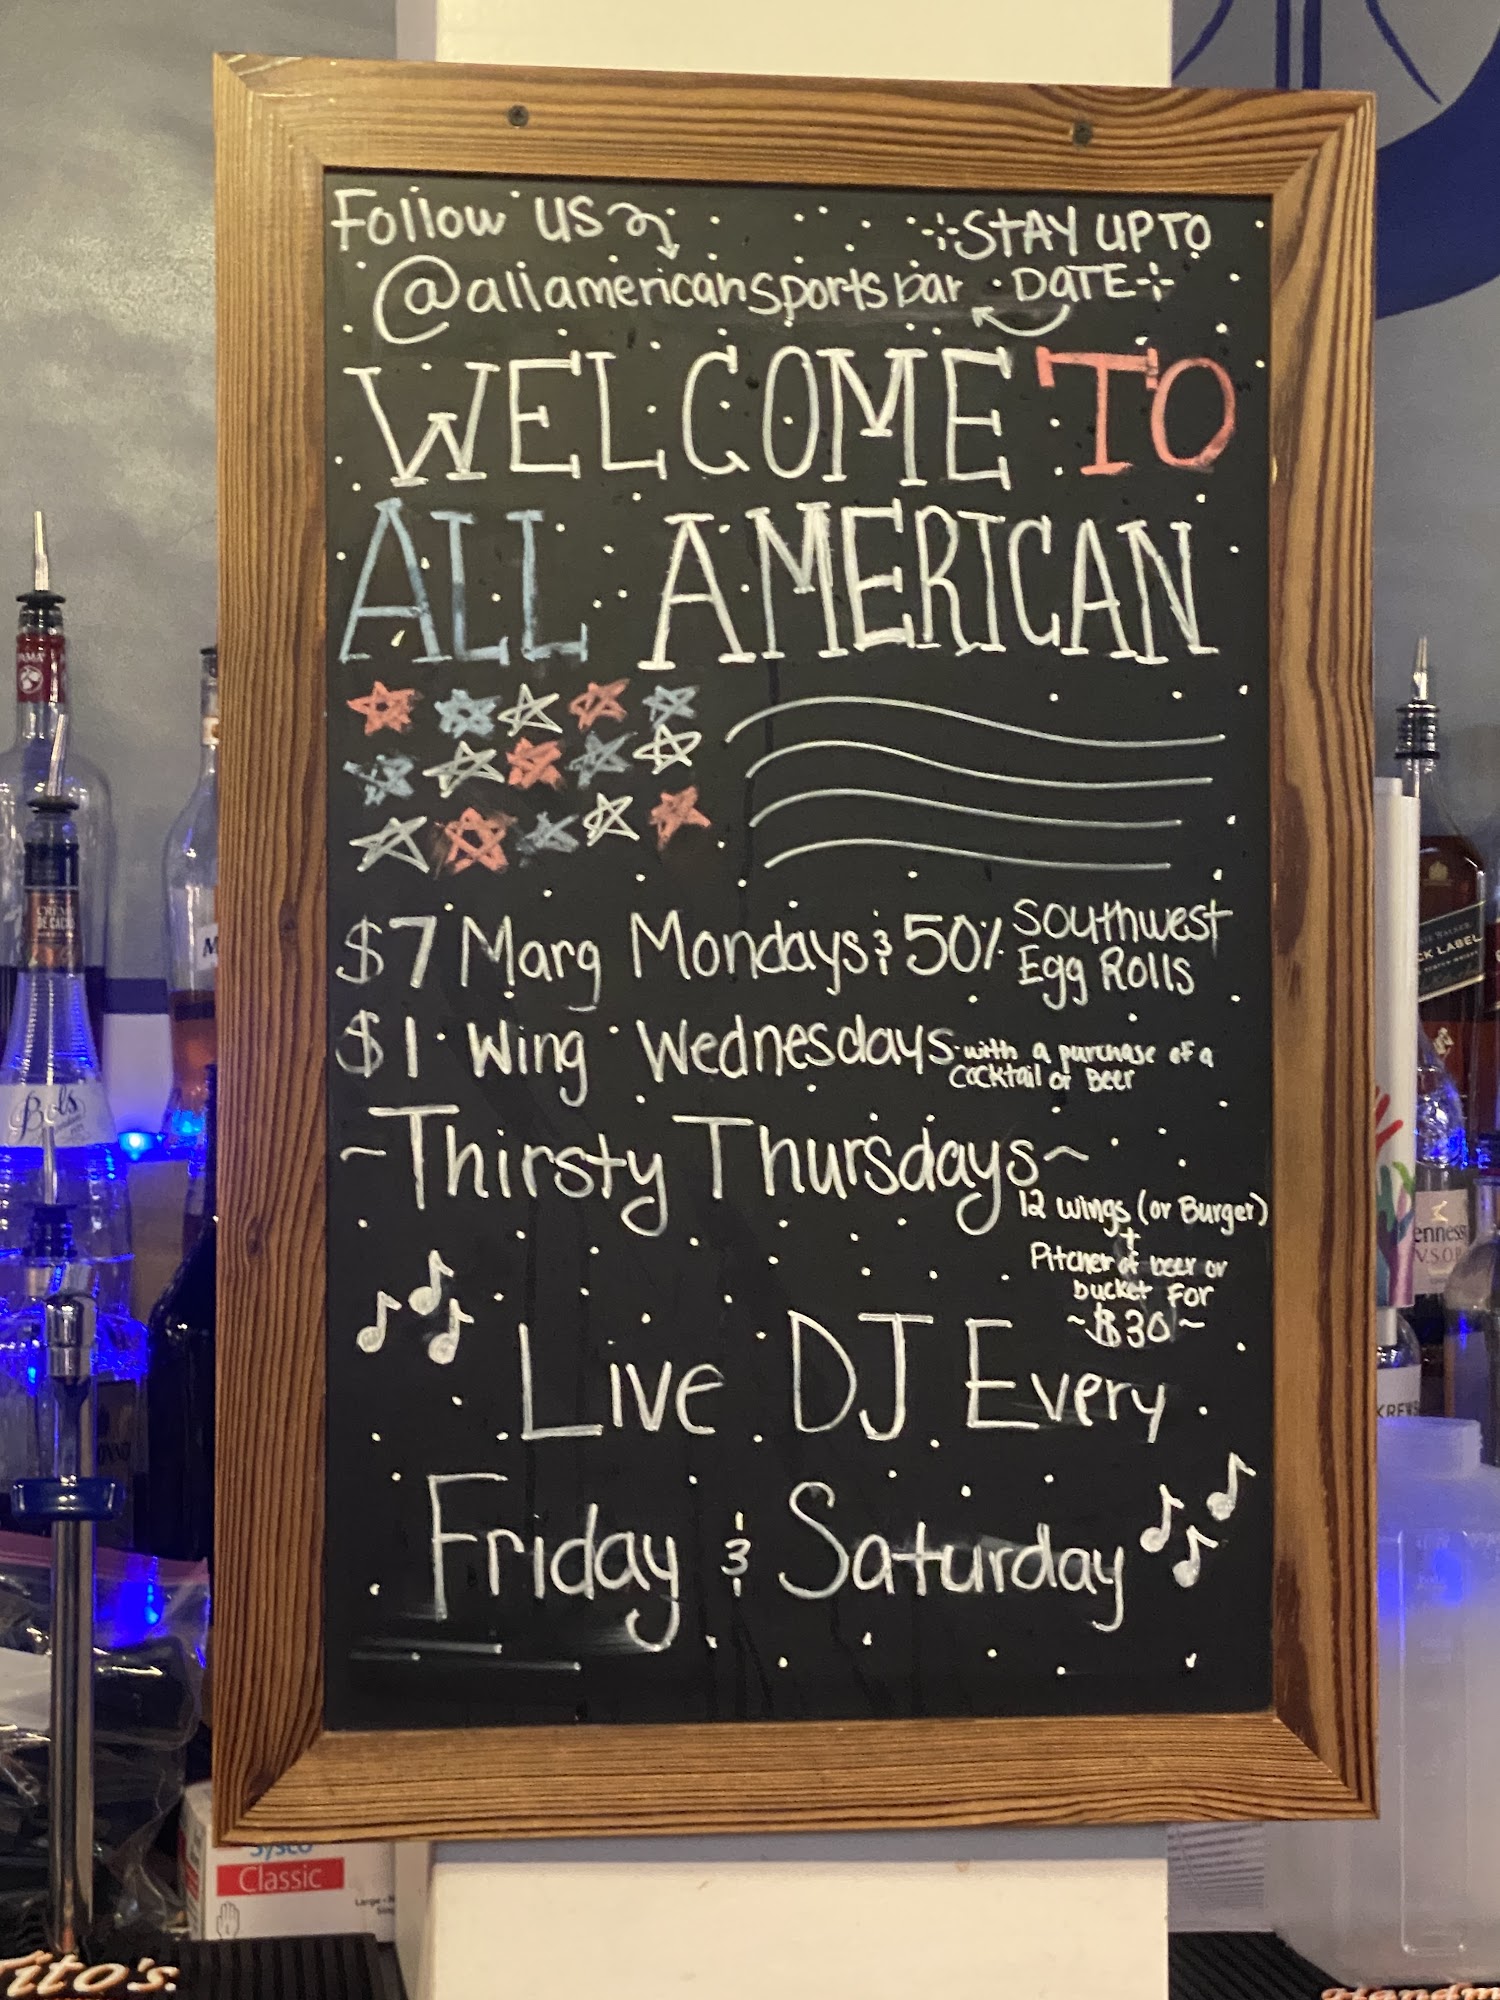 Follow us
STAY UP TO
@allamericansportsbar
DATE
WELCOME TO
ALL AMERICAN
$7 Marg Mondays & 50% Southwest
Egg Rolls
$1 Wing Wednesdays - with a purchase of a
cocktail or Beer
~Thirsty Thursdays~
12 wings (or Burger)
+
Pitcher of beer or
bucket For
~$30~
Live DJ Every
Friday & Saturday
Bols
CRÈME
DE CACAO
CK LABEL
ennessy
V.S.O.P
KREWS
Sysco
Classic
Large
Tito's
Handm